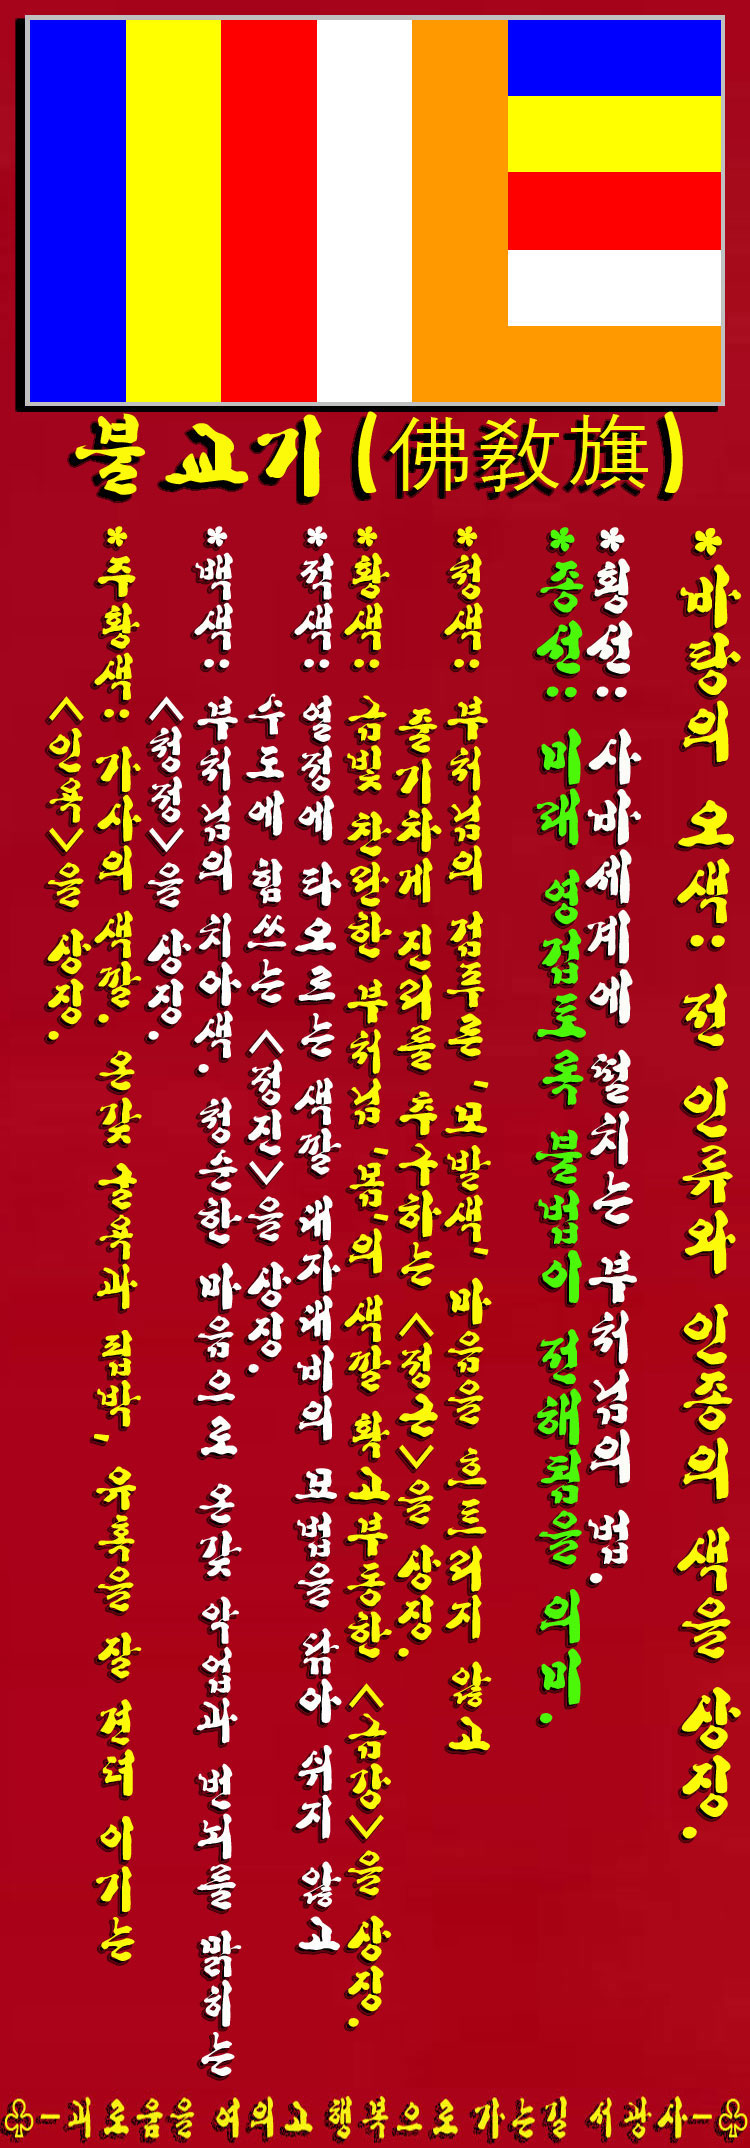 불교기(佛敎旗)
*바탕의 오색: 전 인류와 인종의 색을 상징.
*횡선: 사바세계에 떨치는 부처님의 법.
*종선: 미래 영겁토록 불법이 전해됨을 의미.
*청색: 부처님의 검푸른 '모발색' 마음을 흐트리지 않고
줄기차게 진리를 추구하는 <정근>을 상징.
*황색: 금빛 찬란한 부처님 '몸'의 색깔 확고부동한 <금강>을 상징.
*적색: 열정에 타오르는 색깔 대자대비의 묘법을 닦아 쉬지 않고
수도에 힘쓰는 <정진>을 상징.
*백색: 부처님의 치아색. 청순한 마음으로 온갖 악업과 번뇌를 맑히는
<청정>을 상징.
*주황색: 가사의 색깔. 온갖 굴욕과 핍박, 유혹을 잘 견뎌 이기는
<인욕>을 상징.
♧-괴로움을 여의고 행복으로 가는길 서광사-♧